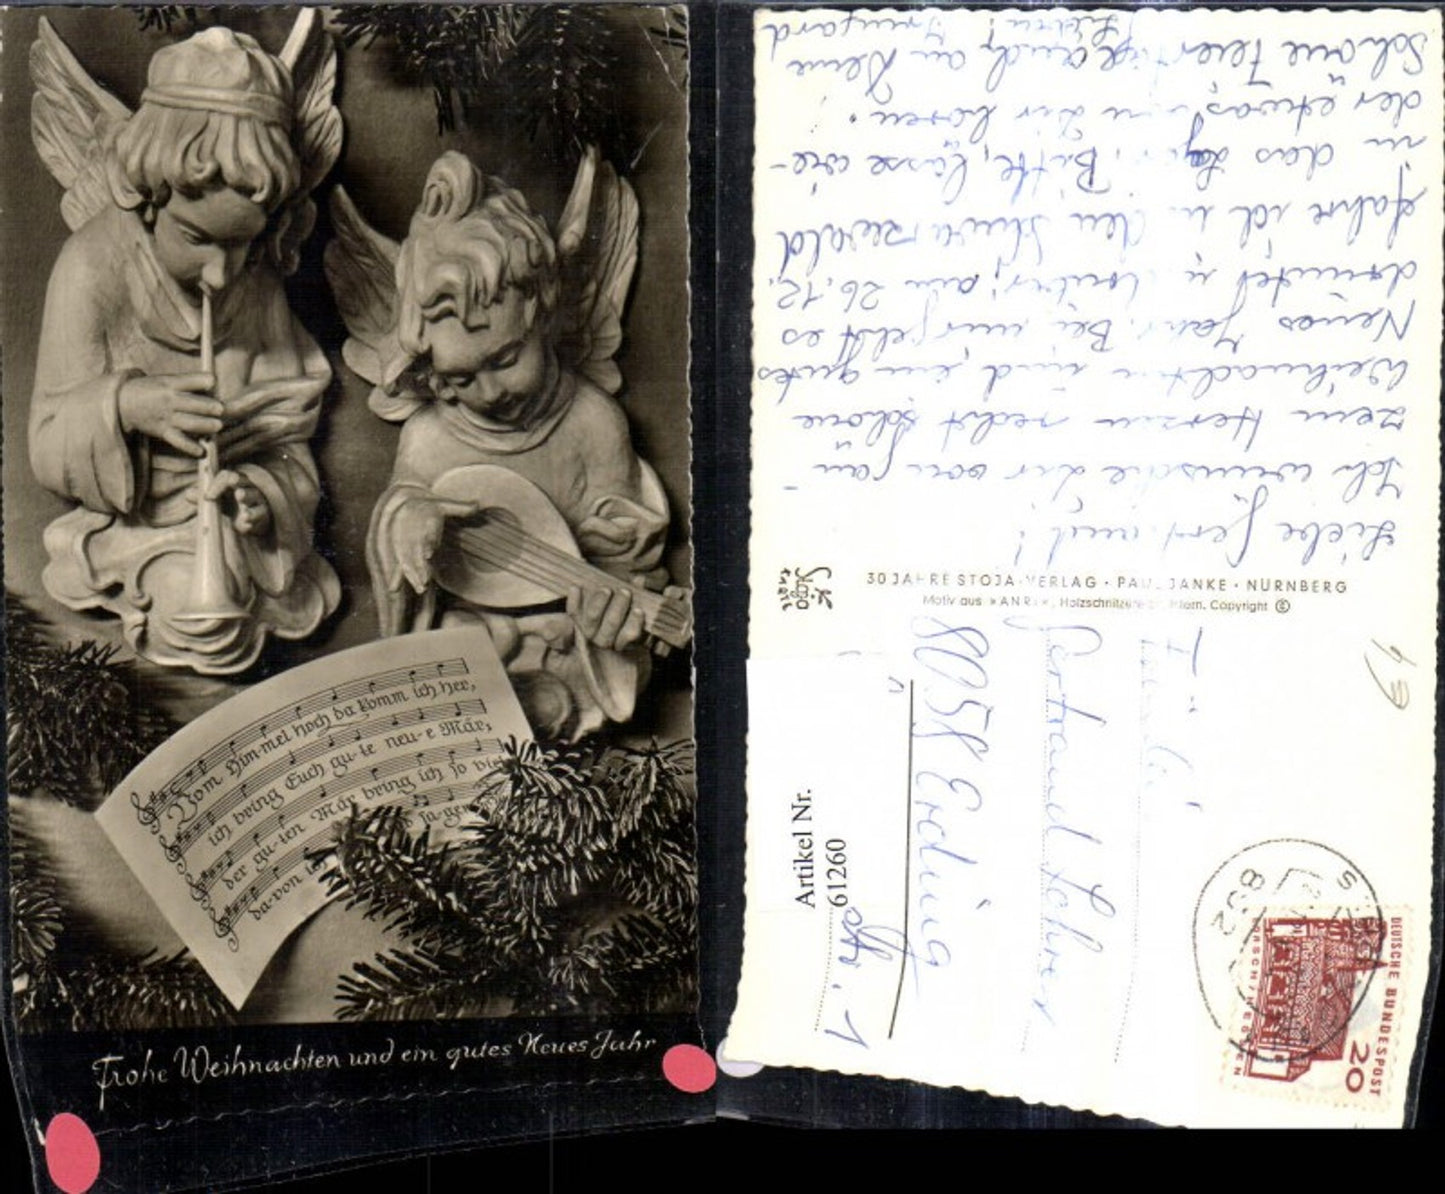 Vom Him-mel hoch da komm ich her,
ich bring Euch gu-te neu-e Mär,
der gu-ten Mär bring ich so vie
da-von ich sa-gen
Frohe Weihnachten und ein gutes Neues Jahr
Liebe Gertraud!
Ich wünsche dir von gan-
zem Herzen recht schöne
Weihnachten und ein gutes
Neues Jahr. Bei mir geht es
drunter u. drüber, am 26.12.
fahre ich in den Schwarzwald
in das Bitte, lasse wie-
der etwas von dir hören.
Schöne Feiertage auch an Deine
Eltern! Irmgard
Skigo
karte
30 JAHRE STOJA-VERLAG · PAUL JANKE · NÜRNBERG
Motiv aus »ANRI«, Holzschnitzerei Intern. Copyright ©
Gertraud
8058 Erding
Str. 1
Artikel Nr.
61260
DEUTSCHE BUNDESPOST
20
LORSCH/HESSEN
802